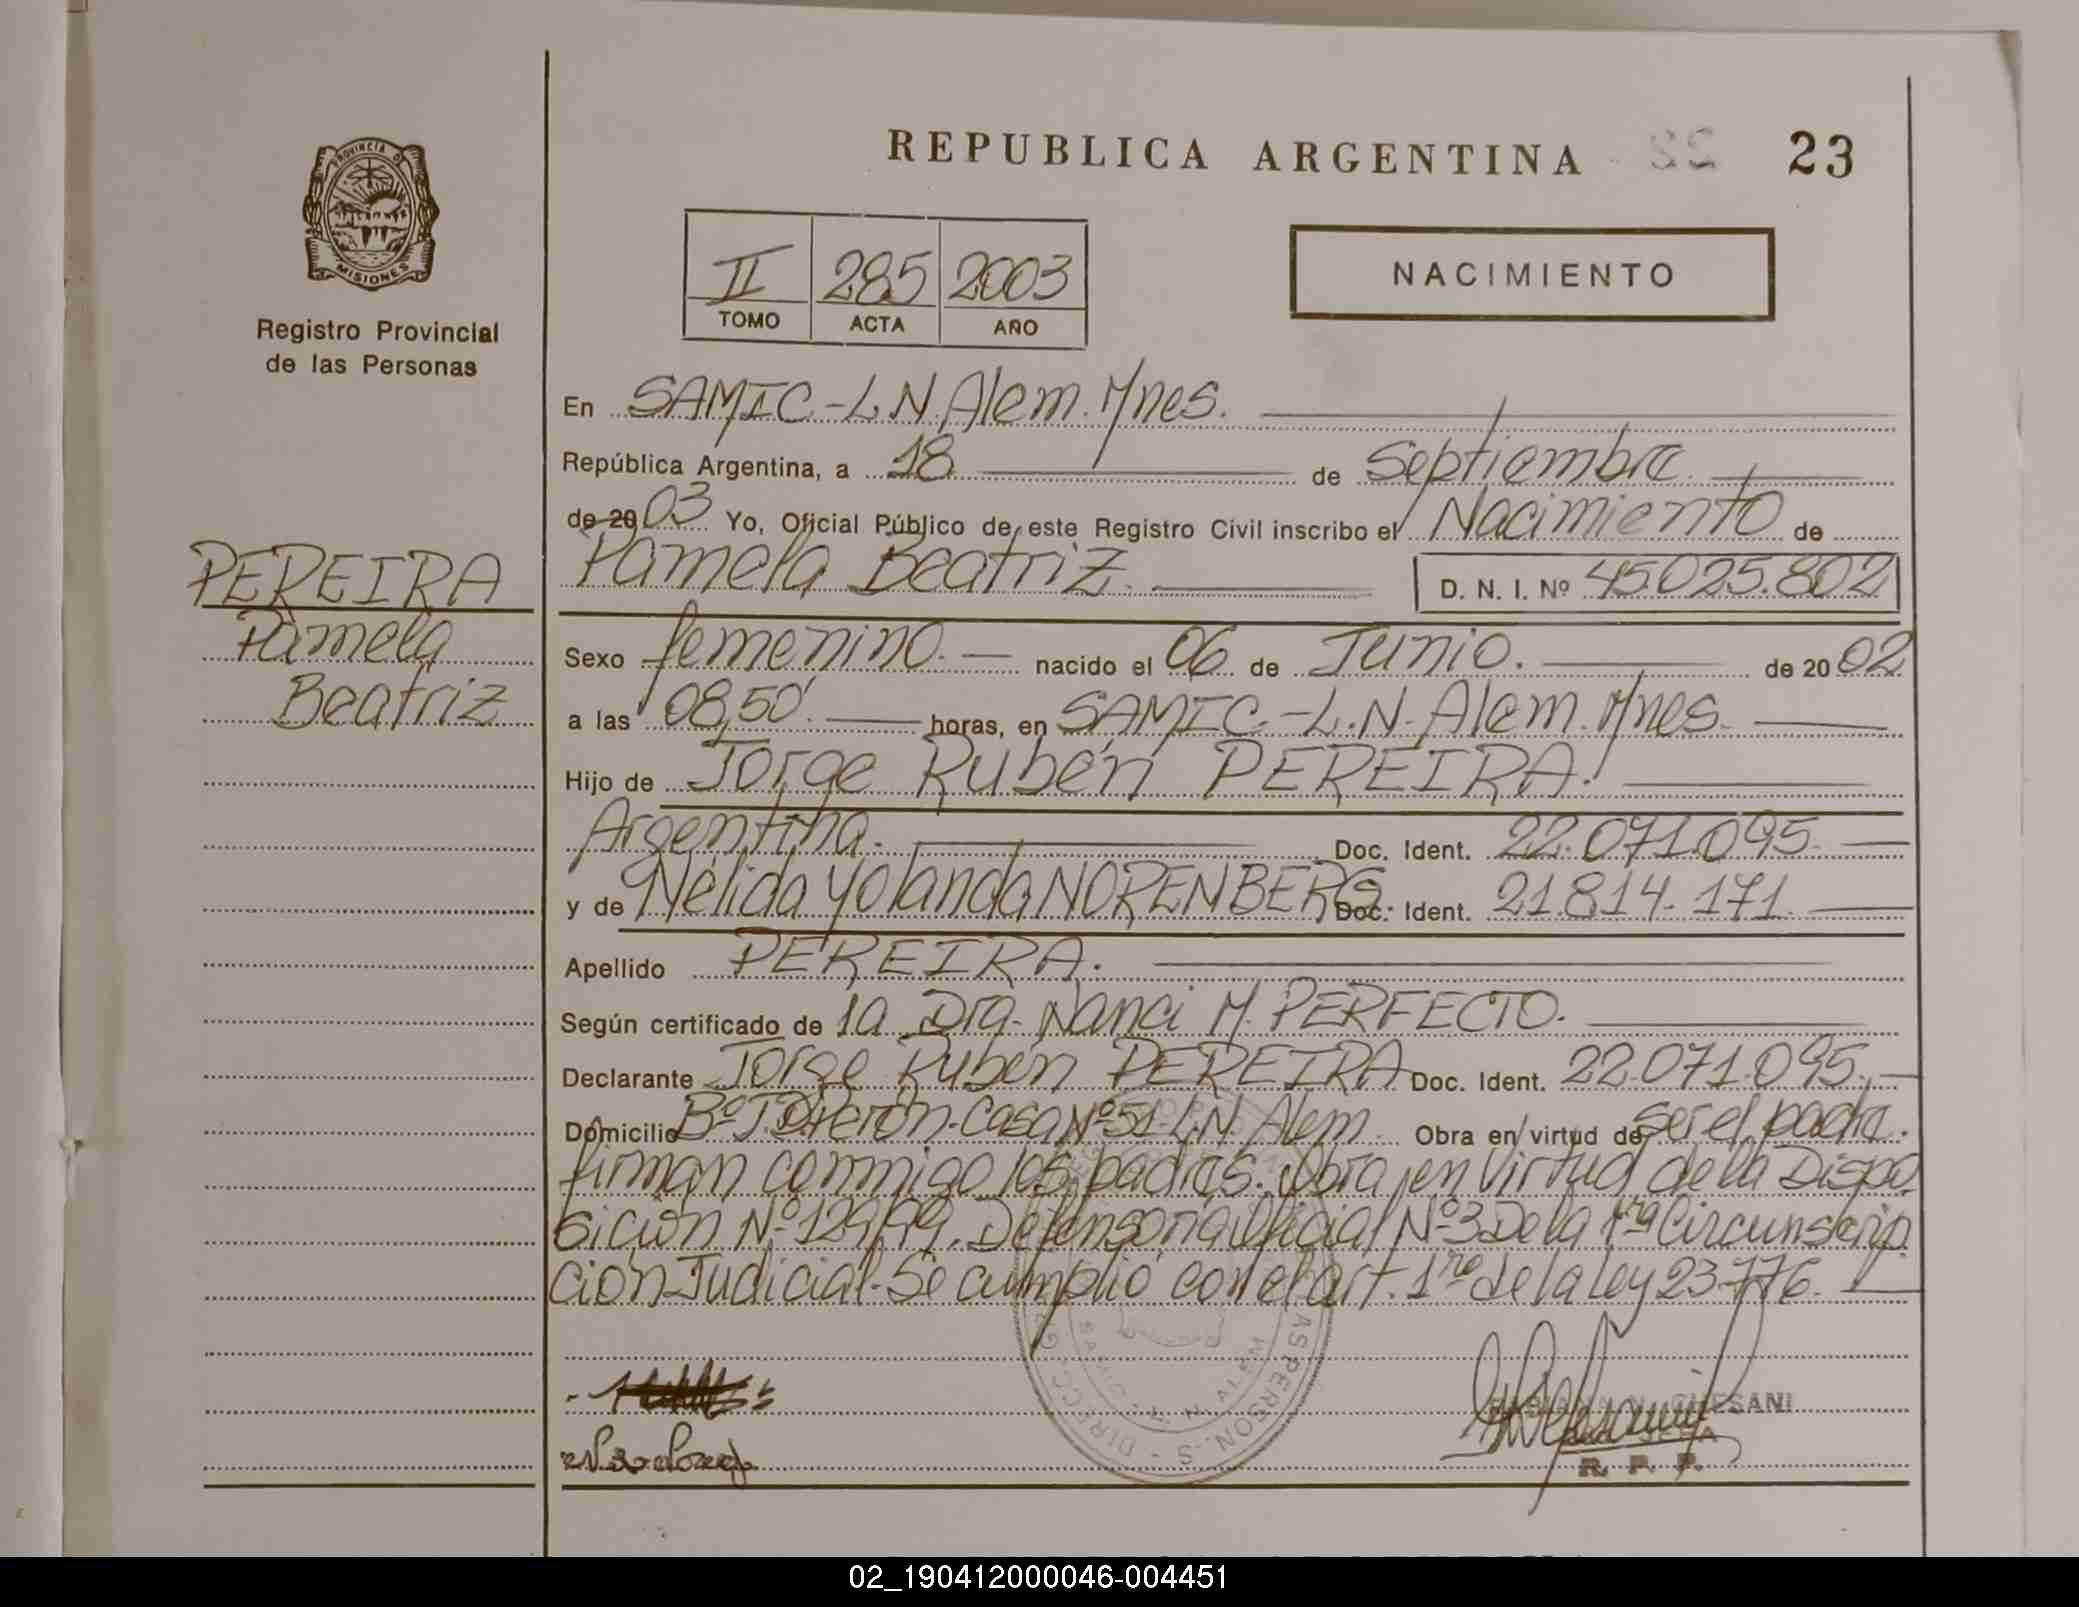 REPUBLICA ARGENTINA 22 23
PROVINCIA D
MISIONES
Registro Provincial
de las Personas
II 285 2003
TOMO ACTA AÑO
NACIMIENTO
En SAMIC-L.N.Alem.Mnes.
República Argentina, a 18 de Septiembre
de 20 03 Yo, Oficial Público de este Registro Civil inscribo el Nacimiento de
Pamela Beatriz. D. N. I. Nº 45.025.802
PEREIRA
Pamela
Beatriz
Sexo femenino. nacido el 06 de Junio. de 20 02
a las 08,50' horas, en SAMIC.-L.N.Alem.Mnes.
Hijo de Jorge Rubén PEREIRA.
Argentina. Doc. Ident. 22.071.095.
y de Nélida Yolanda NORENBERG Doc. Ident. 21.814.171.
Apellido PEREIRA.
Según certificado de la Dra. Nanci M. PERFECTO.
Declarante Jorge Rubén PEREIRA Doc. Ident. 22.071.095.
Domicilio Bº J.D.Perón-Casa Nº 51-L.N. Alem Obra en virtud de ser el padre.
firman conmigo los padres. Obra en virtud de la Dispo
sición Nº 129/99. Defensoría Oficial Nº 3 De la 1ra Circunscrip
ción Judicial-Se cumplió con el art. 1ro de la Ley 23.776.
GHESANI
R. P. P.
02_190412000046-004451